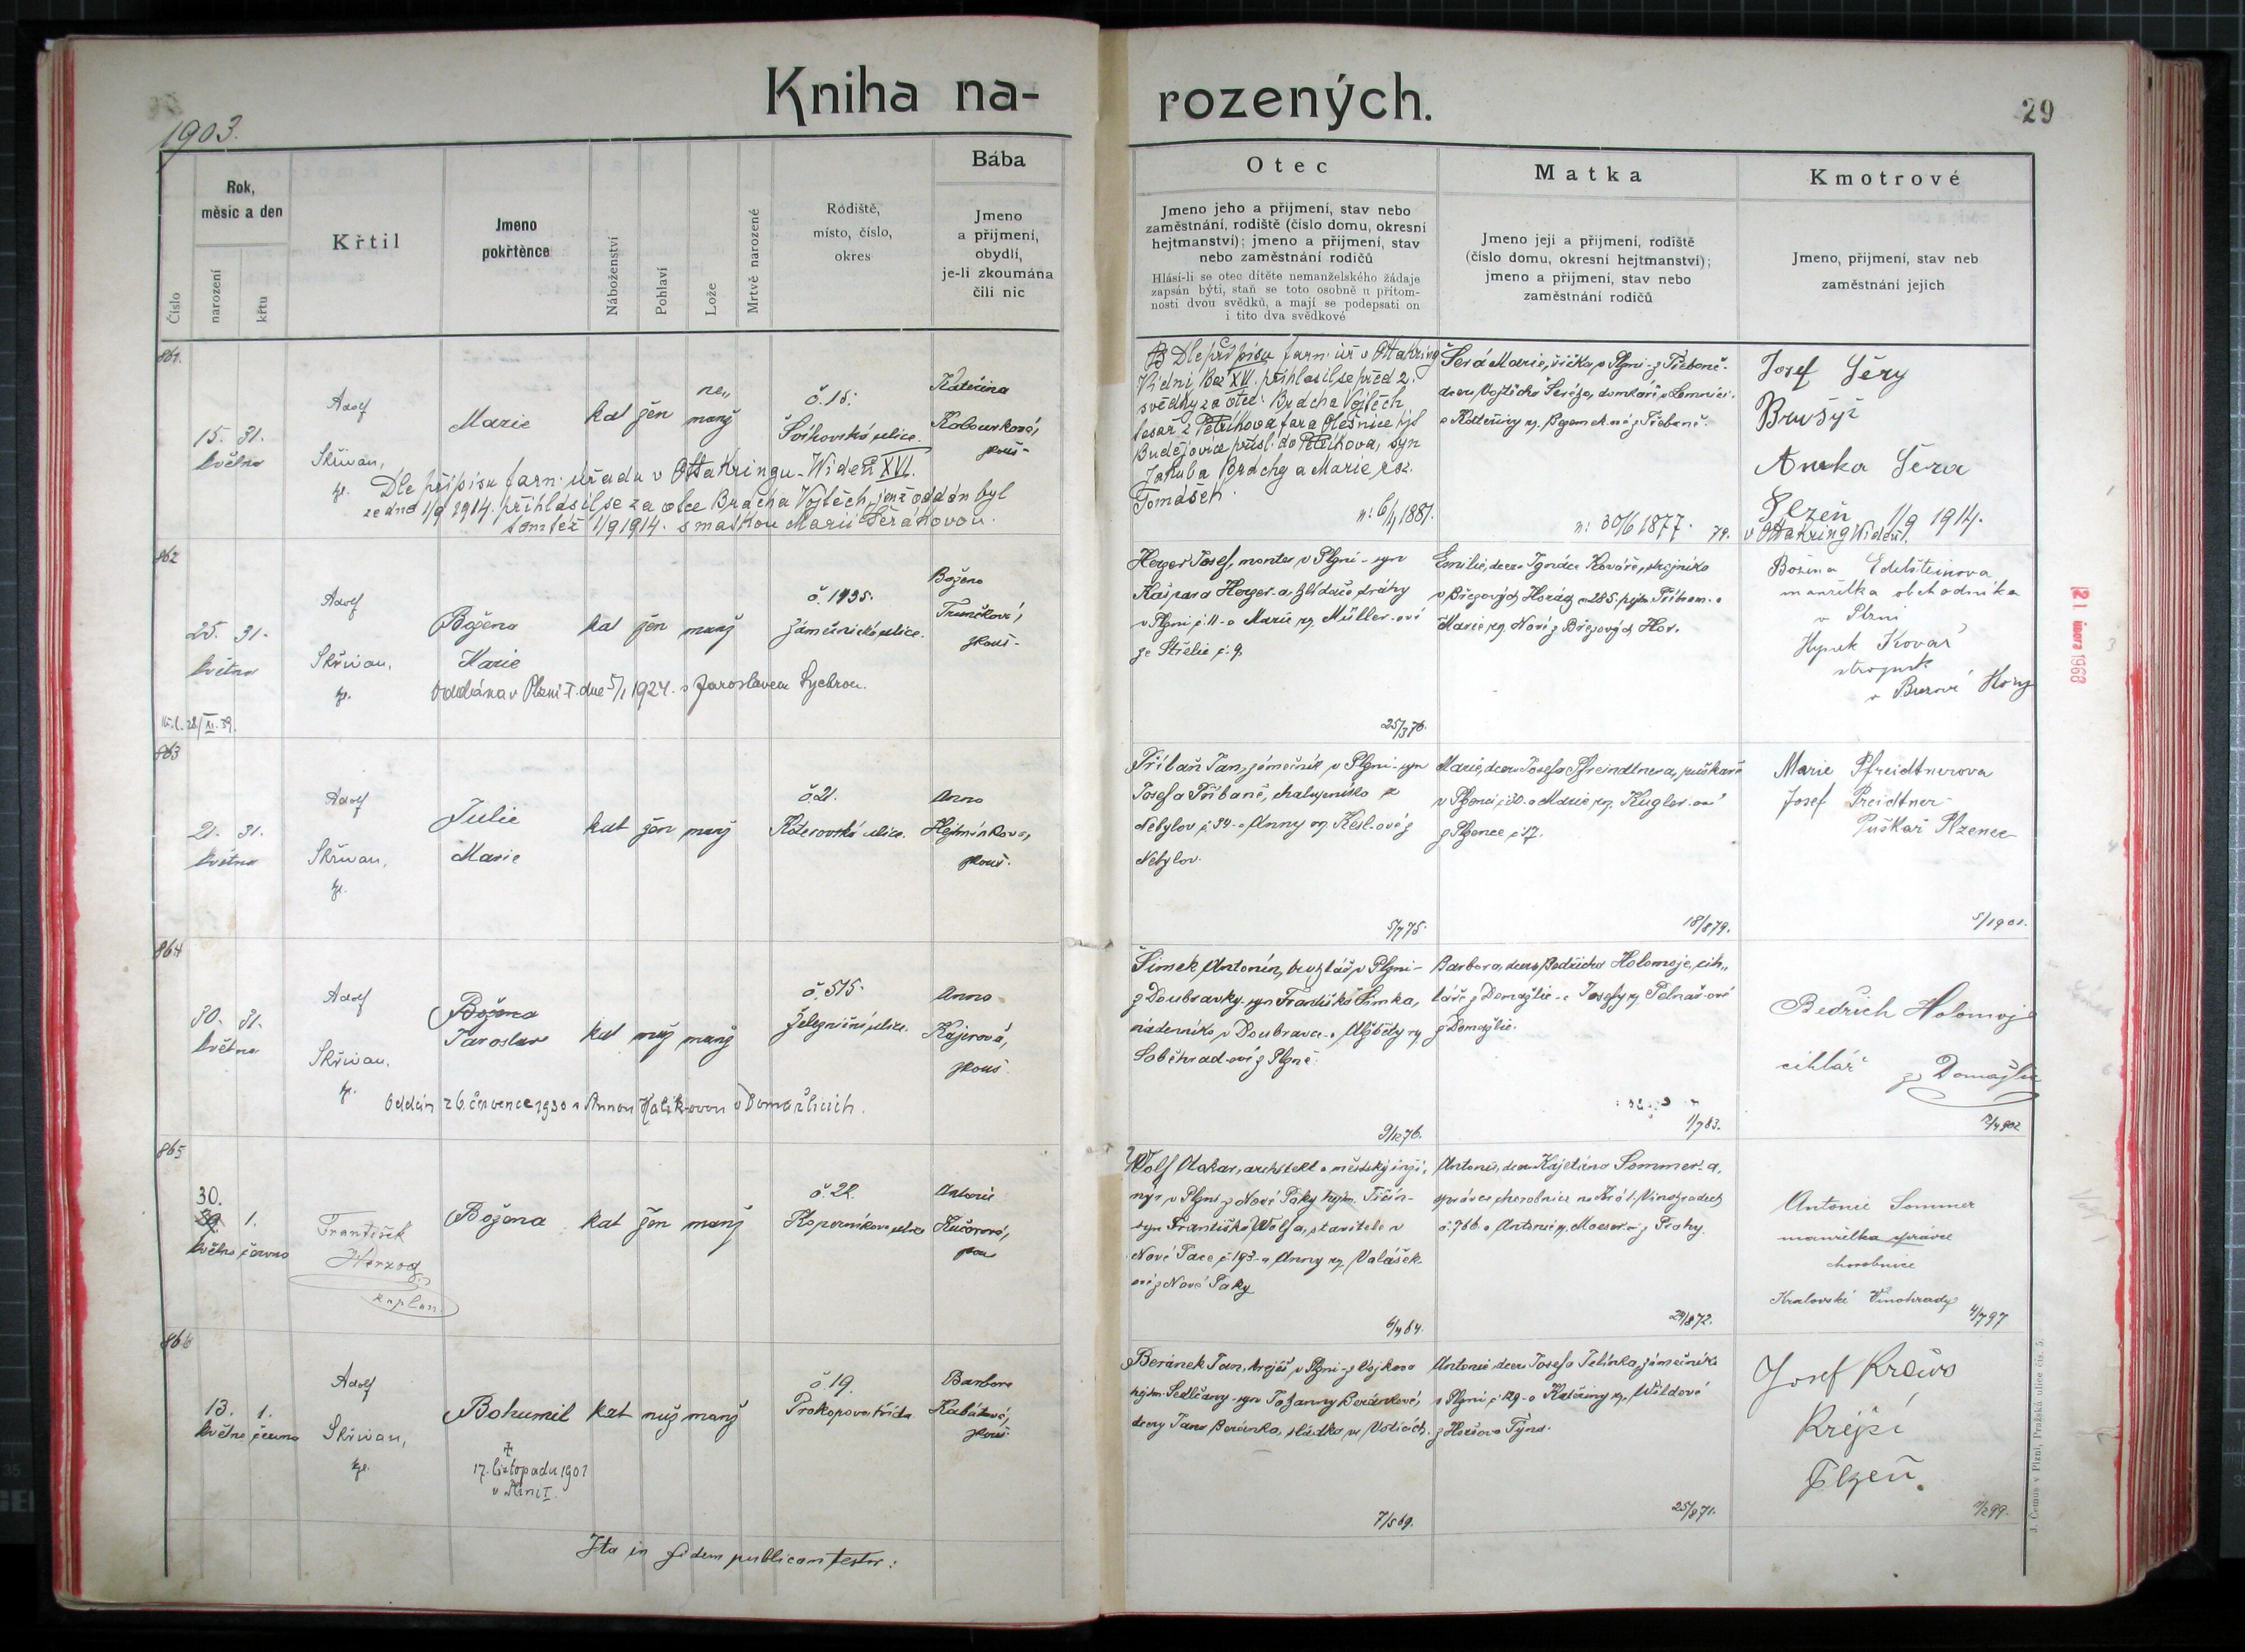 Kniha na-
rozených.
29
1903.
Číslo
Rok,
měsíc a den
narození
křtu
Křtil
Jmeno
pokřtěnce
Náboženství
Pohlaví
Lože
Mrtvě narozené
Rodiště,
místo, číslo,
okres
Bába
Jmeno
a příjmení,
obydlí,
je-li zkoumána
čili nic
Otec
Jmeno jeho a příjmení, stav nebo
zaměstnání, rodiště (číslo domu, okresní
hejtmanství); jmeno a příjmení, stav
nebo zaměstnání rodičů
Hlásí-li se otec dítěte nemanželského žádaje
zapsán býti, staň se toto osobně u přítom-
nosti dvou svědků, a mají se podepsati on
i tito dva svědkové
Matka
Jmeno její a příjmení, rodiště
(číslo domu, okresní hejtmanství);
jmeno a příjmení, stav nebo
zaměstnání rodičů
Kmotrové
Jmeno, příjmení, stav neb
zaměstnání jejich
861.
15. 31.
května
Adolf
Skřivan,
Marie
kat žen ne„
manž
č. 15.
ulice
Kateřina
zkouš-
Dle přípisu farn. úřadu v Ottakringu-Wídeň XVI.
ze dne 1/9 1914. přihlásil se za otce Brácha Vojtěch, jenž oddán byl
tamtéž 1/9 1914. s matkou Marií Šerákovou.
Dle přípisu farn. úř. v Ottakring
Vídni, Bez XVI. přihlásil se před 2.
svědky za otce: Brácha Vojtěch
tesař z Petříkova fara Olešnice hjt
Budějovice přísl. do Petříkova, syn
Jakuba Bráchy a Marie roz.
Tomášek.
n: 6/4 1881.
n: 30/6 1877.
Josef Šerý
Anka Šera
Plzeň 1/9 1914.
v Ottakring Wídeň.
862
25. 31.
května
Adolf
Skřivan,
Božena
Marie
kat žen manž
č. 1435.
Zámečnická ulice.
Božena
Trunečková,
zkouš-
Oddána v Plzni I. dne 5/1 1924. s Jaroslavem Sychrou.
Herger Josef, monter v Plzni - syn
Kašpara Herger-a, hlídače dráhy
v Plzni č. 11 - a Marie roz. Müller-ové
ze Střelic č. 9.
25/3 76.
Emilie, dcera Ignáce Kováře, strojníka
v Březových Horách č 285. hejtm Příbram. a
Marie roz. Nové z Březových Hor.
Božena Edelsteinova
manželka obchodníka
v Plzni
Hynek Kovař
strojník
v Březové Hory
21. února 1968
863
21. 31.
května
Adolf
Skřivan,
Julie
Marie
kat žen manž
č. 21.
Koterovská ulice.
Anna
Hejmánková,
zkouš.
Přibáň Jan, zámečník v Plzni - syn
Josefa Přibáně, chalupníka z
Nebylov č 34 - a Anny roz. Kesl-ové z
Nebylov.
5/7 75.
Marie, dcera Josefa Pfreindtnera, puškaře
v Plzenci č 30. a Marie roz. Kugler-ové
z Plzence č 17.
18/8 79.
Marie Pfreidtnerova
Josef Preidtner
Puškař Plzenec
5/1 901.
864
30. 31.
května
Adolf
Skřivan.
Božena
Jaroslav
kat muž manž
č. 515.
Železniční ulice.
Anna
Kajerová,
zkouš.
Oddán 26. července 1930 s Annou Kalíkovou v Domažlicích.
Šimek Antonín, truhlář v Plzni -
z Doubravky - syn Františka Šimka,
nádenníka v Doubravce - a Alžběty roz
Soběhrad-ové z Plzně.
9/12 76.
Barbora, dcera Bedřicha Holomoje, cih„
láře z Domažlic - a Josefy roz Pelnař-ové
z Domažlic.
1/7 83.
Bedřich Holomoj
cihlář z Domažlic
865
30.
29 1.
května června
František
Herzog
kaplan.
Božena
kat žen manž
č. 22.
Koperníkova ulice
Antonie
Kučerová,
Wolf Otakar, architekt a městský inži-
nýr v Plzni z Nové Paky hejtm. Jičín -
syn Františka Wolf a, stavitele v
Nové Pace č. 193 - a Anny roz Valášek-
ové z Nové Paky
6/4 64.
Antonie, dcera Kajetána Sommer-a,
správce chorobnice na Král. Vinohradech
č. 766. a Antonie r. Moeser-ové z Prahy.
29/8 72.
Antonie Sommer
manželka správce
chorobnice
Kralovské Vinohrady
4/7 97
866
13. 1.
května června
Adolf
Skřivan,
Bohumil
kat muž manž
17. listopadu 1903
v Plzni I.
č. 19.
Prokopova třída
Barbora
Kabátová,
zkouš.
Beránek Jan, krejčí v Plzni - z Vojkova
hejtm. Sedlčany - syn Johanny Beránkové,
dcery Jana Beránka, sládka ve Voticích.
7/5 69.
Antonie dcera Josefa Jelínka, zámečníka
v Plzni č 129 - a Kateřiny roz. Wildové
z Horšova Týna.
25/8 71.
Josef Kraus
Krejčí
Plzeň.
Ita in fidem publicam testor:
J. Čemus v Plzni, Pražská ulice čís. 5.